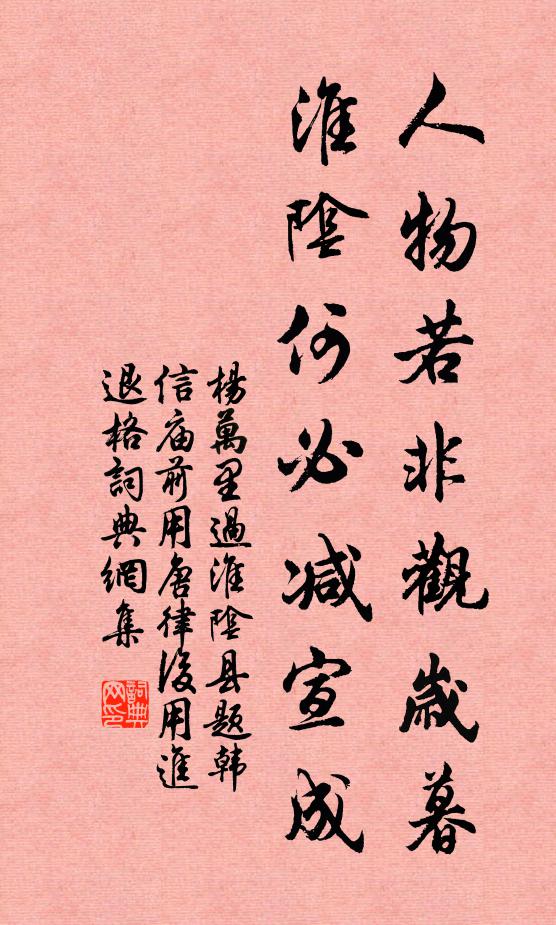 人物若非觀歲暮
淮陰何必减宣成
楊萬里過淮陰县題韩
信庙前用唐律後用進
退格詞典網集
詞典网印